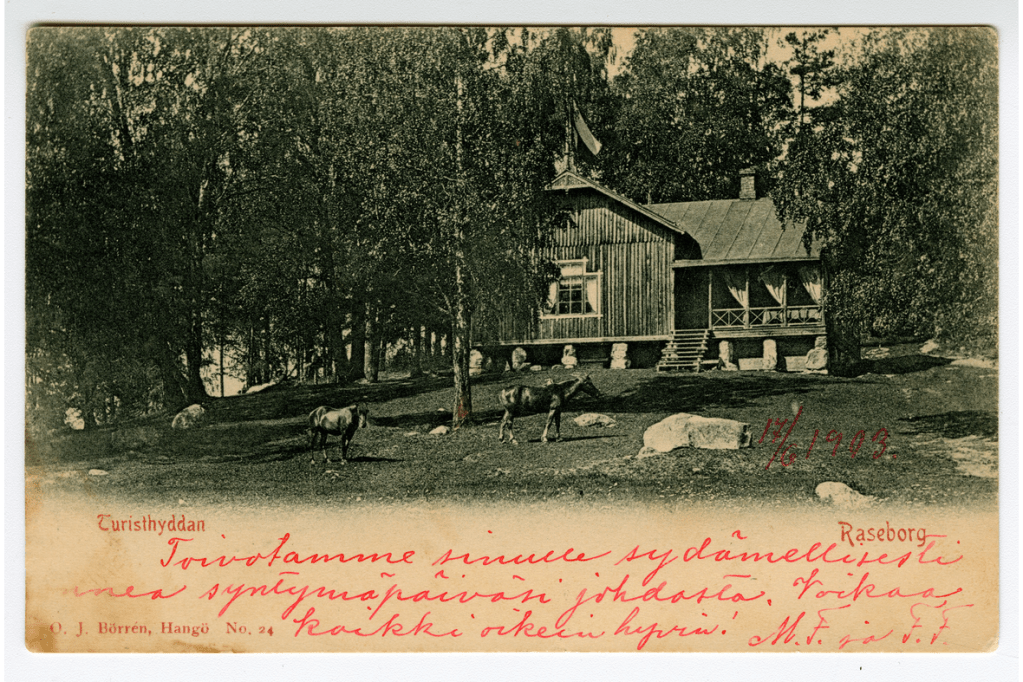 17/6 1903.
Turisthyddan
Raseborg
Toivotamme sinulle sydämellisesti
onnea syntymäpäiväsi johdosta. Voikaa
O. J. Börrén, Hangö No. 24
kaikki oikein hyvin! M. F. ja F. F.